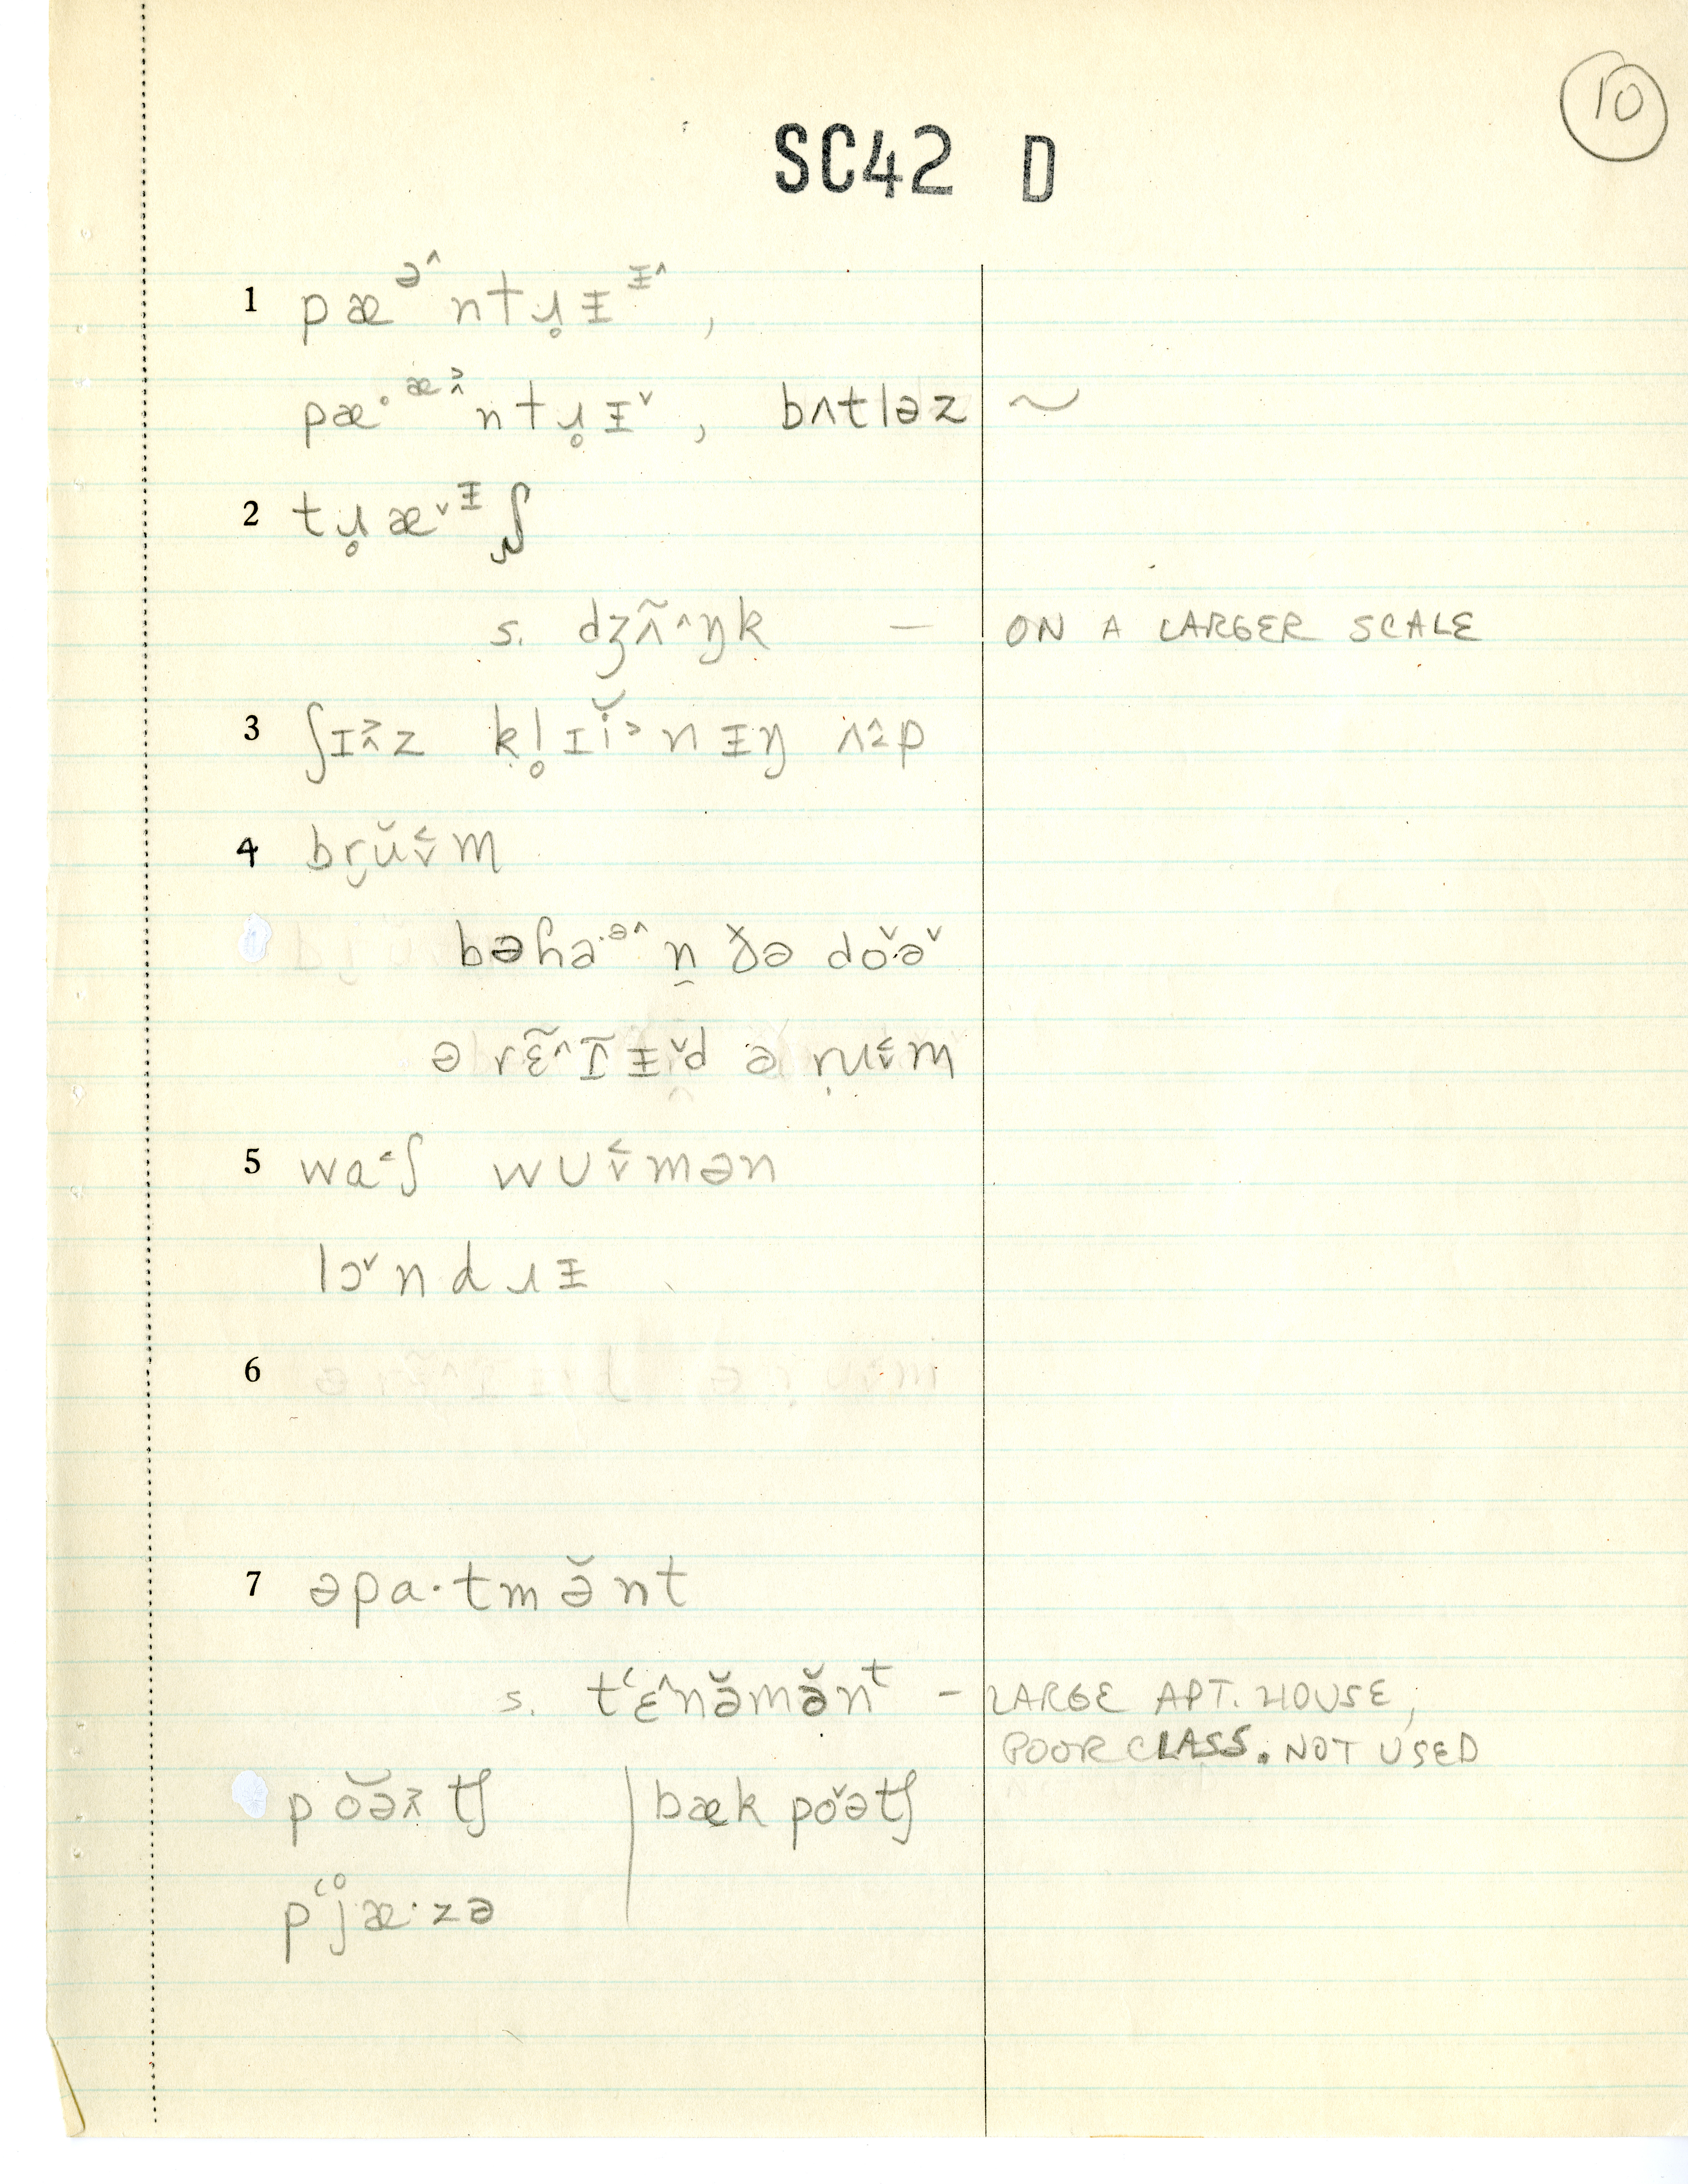 10
SC42 D
1 pæᵊ˄ntɹ̥ɪ̵ᶧ˄,
pæ·ᵆ˃˄ntɹ̥ɪ̵˅, bʌtləz ~
2 tɹ̥æ˅ᶧʃ
s. dʒʌ̃˄ŋk — ON A LARGER SCALE
3 ʃɪ˃˄z kl̥ɪĭ˃nɪ̵ŋ ʌ˄˃p
4 br̯ŭ˂˅m
bəɦa·ᵊ˄n̯ ðə do˅·ə˅
ə rɛ̃˄ɪ̃ɪ̵˅d ə ṛu˂˅m
5 wɑ˂ʃ wʊ˂˅mən
lɔ˅ndɹɪ̵
6
7 əpa·tmə̆nt
s. tʻɛ˄nə̆mə̆nᵗ – LARGE APT. HOUSE,
POOR CLASS. NOT USED
pŏə˃˄tʃ | bæk po˅ətʃ
pʻj̊æ·zə